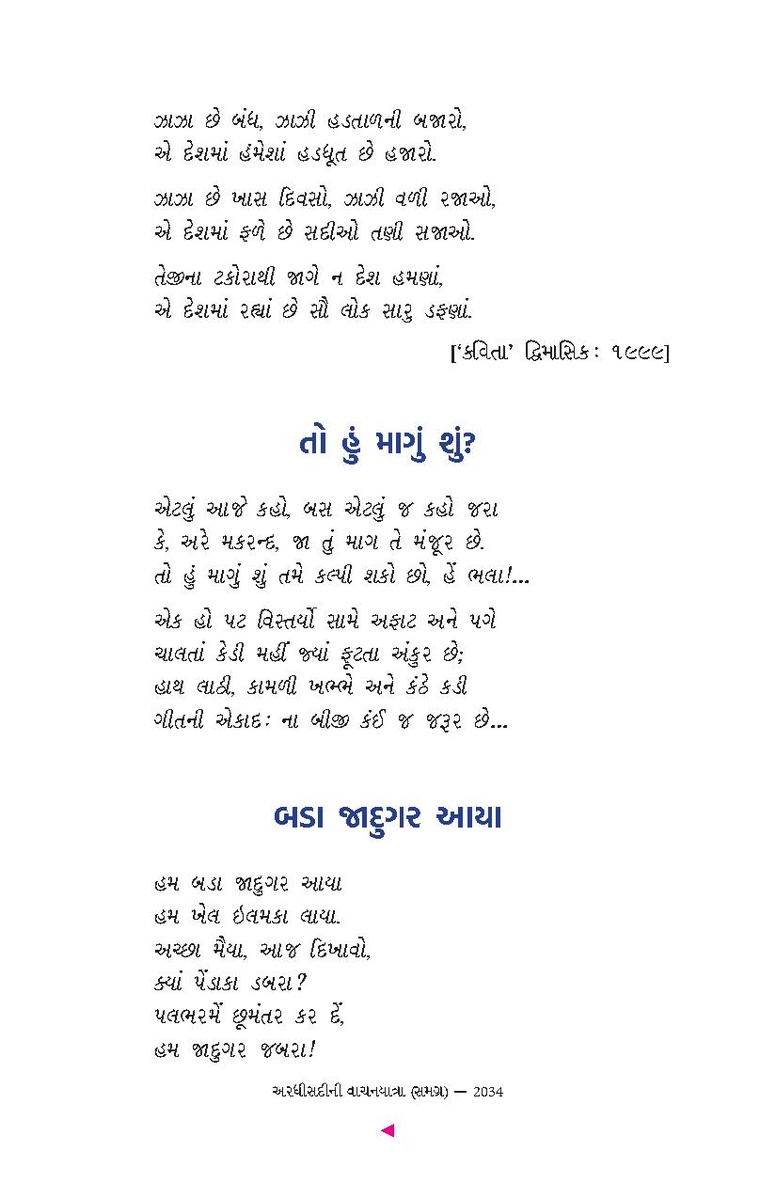 ઝાઝા છે બંધ, ઝાઝી હડતાળની બજારો,
એ દેશમાં હંમેશાં હડધૂત છે હજારો.
ઝાઝા છે ખાસ દિવસો, ઝાઝી વળી રજાઓ,
એ દેશમાં ફળે છે સદીઓ તણી સજાઓ.
તેજીના ટકોરાથી જાગે ન દેશ હમણાં,
એ દેશમાં રહ્યાં છે સૌ લોક સારુ ડફણાં.
[‘કવિતા’ દ્વિમાસિક: ૧૯૯૯]
તો હું માગું શું?
એટલું આજે કહો, બસ એટલું જ કહો જરા
કે, અરે મકરન્દ, જા તું માગ તે મંજૂર છે.
તો હું માગું શું તમે કલ્પી શકો છો, હેં ભલા!...
એક હો પટ વિસ્તર્યો સામે અફાટ અને પગે
ચાલતાં કેડી મહીં જ્યાં ફૂટતા અંકુર છે;
હાથ લાઠી, કામળી ખભ્ભે અને કંઠે કડી
ગીતની એકાદ: ના બીજી કંઈ જ જરૂર છે...
બડા જાદુગર આયા
હમ બડા જાદુગર આયા
હમ ખેલ ઇલમકા લાયા.
અચ્છા મૈયા, આજ દિખાવો,
ક્યાં પેંડાકા ડબરા?
પલભરમેં છૂમંતર કર દેં,
હમ જાદુગર જબરા!
અરધીસદીની વાચનયાત્રા (સમગ્ર) — 2034
◀